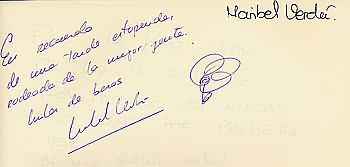 En recuerdo
de una tarde estupenda,
rodeada de la mejor gente.
Miles de besos
Maribel Verdú.